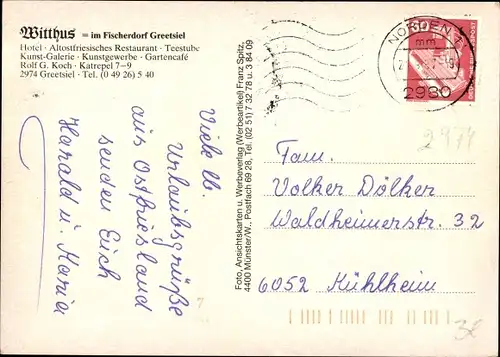 Witthus = im Fischerdorf Greetsiel
Hotel · Altostfriesisches Restaurant · Teestube
Kunst-Galerie · Kunstgewerbe · Gartencafé
Rolf G. Koch · Katrepel 7–9
2974 Greetsiel · Tel. (0 49 26) 5 40
Viele lb.
Urlaubsgrüße
aus Ostfriesland
senden Euch
Harald u. Maria
Foto, Ansichtskarten u. Werbeverlag (Werbeartikel) Franz Spitz,
4400 Münster/W., Postfach 69 28, Tel. (02 51) 7 32 78 u. 3 84 09
NORDEN 1
mm
2980
2974
Fam.
Volker Dölker
Waldheimerstr. 32
6052 Mühlheim